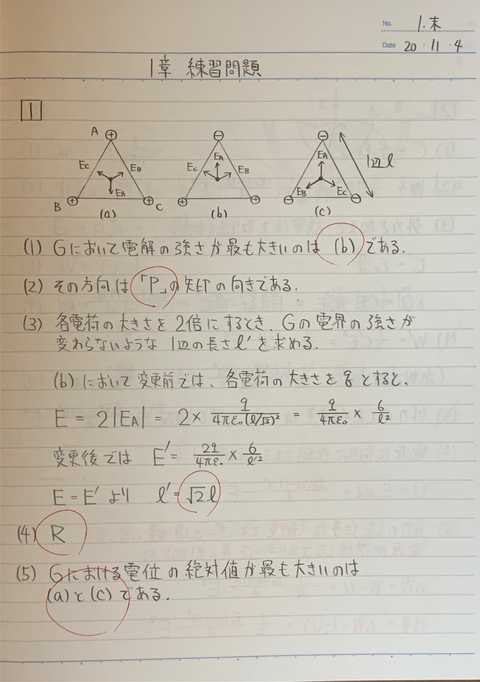 No. 1.末
Date 20・11・4
1章 練習問題
1
A ⊕ ⊖ ⊕
Ec EB EA Ec EA EB EA EB Ec 1辺l
B ⊕ ⊕ C ⊕ ⊕ ⊖ ⊖
(a) (b) (c)
(1) Gにおいて電解の強さが最も大きいのは (b) である.
(2) その方向は「P」の矢印の向きである.
(3) 各電荷の大きさを2倍にするとき、Gの電界の強さが
変わらないような1辺の長さl'を求める.
(b) において変更前では、各電荷の大きさをqとすると、
E = 2|EA| = 2 × q/4πε₀(l/√3)² = q/4πε₀ × 6/l²
変更後では E' = 2q/4πε₀ × 6/l'²
E = E' より l' = √2 l
(4) R
(5) Gにおける電位の絶対値が最も大きいのは
(a)と(c)である.